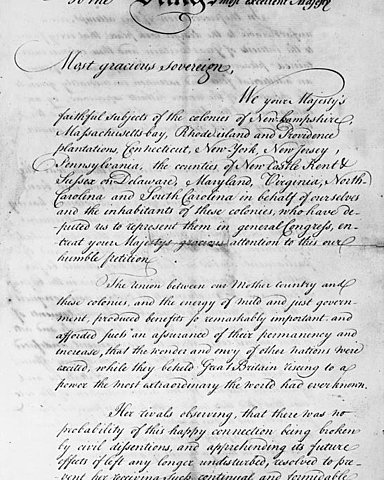 To the King's most excellent Majesty
Most gracious sovereign,
We your Majesty's
faithful subjects of the colonies of New-hampshire,
Massachusetts-bay, Rhode island and Providence
plantations, Connecticut, New-York, New Jersey,
Pennsylvania, the counties of New Castle Kent &
Sussex on Delaware, Maryland, Virginia, North-
Carolina and South Carolina in behalf of ourselves
and the inhabitants of these colonies, who have de-
puted us to represent them in general Congress, en-
treat your Majestys gracious attention to this our
humble petition.
The union between our Mother Country and
these colonies, and the energy of mild and just govern-
ment, produced benefits so remarkably important, and
afforded such an assurance of their permanency and
increase, that the wonder and envy of other nations were
excited, while they beheld Great Britain rising to a
power the most extraordinary the world had ever known.
Her rivals observing, that there was no
probability of this happy connection being broken
by civil dissentions, and apprehending its future
effects if left any longer undisturbed, resolved to pre-
vent her receiving such continual and formidable